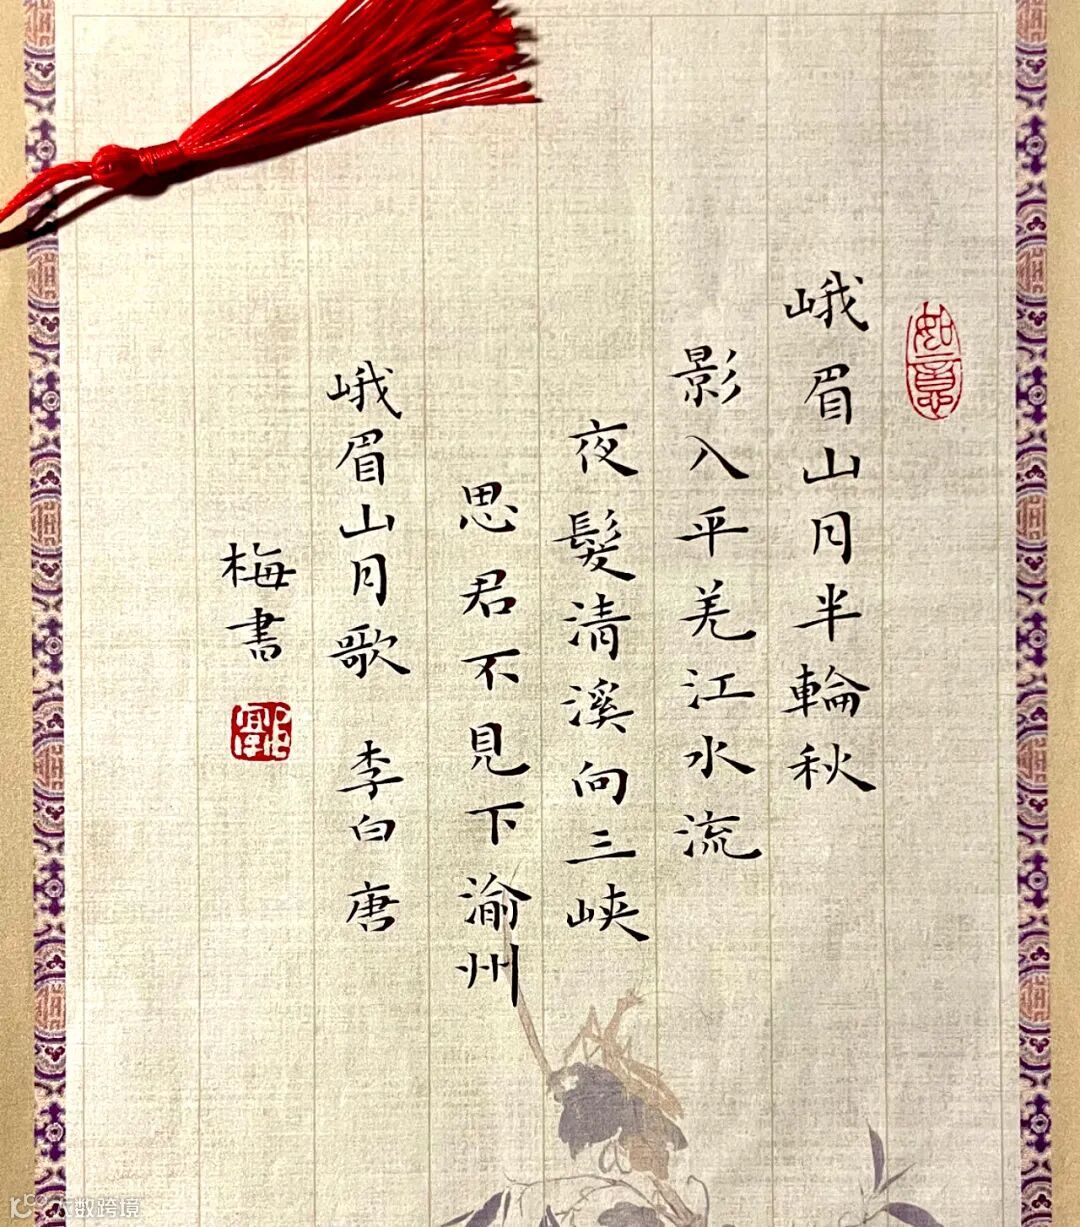 如意
峨眉山月半輪秋
影入平羌江水流
夜髮清溪向三峡
思君不見下渝州
峨眉山月歌 李白 唐
梅書
大数跨境